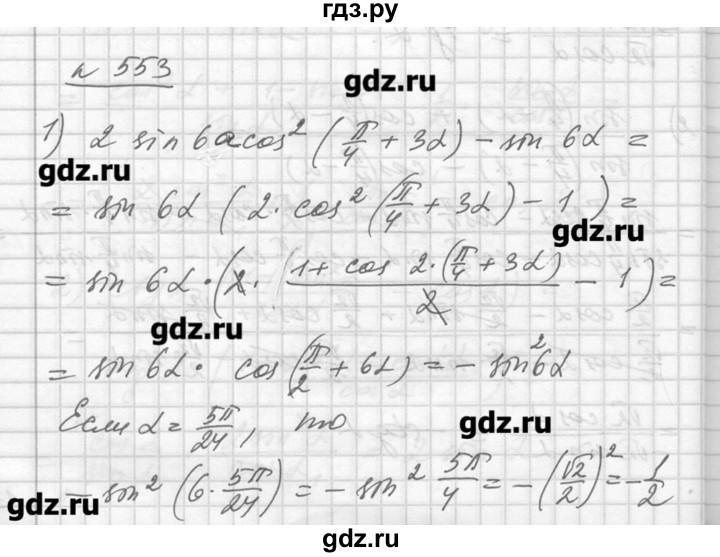 гдз.ру
n 553
gdz.ru
1) 2 sin 6α cos² (π/4 + 3α) - sin 6α =
gdz.ru
= sin 6α (2 · cos² (π/4 + 3α) - 1) =
gdz.ru
= sin 6α · (2 · (1 + cos 2·(π/4 + 3α))/2 - 1) =
gdz.ru
= sin 6α · cos (π/2 + 6α) = - sin² 6α
Если α = 5π/24, то
gdz.ru
- sin² (6 · 5π/24) = - sin² 5π/4 = - (√2/2)² = - 1/2
gdz.ru
gdz.ru